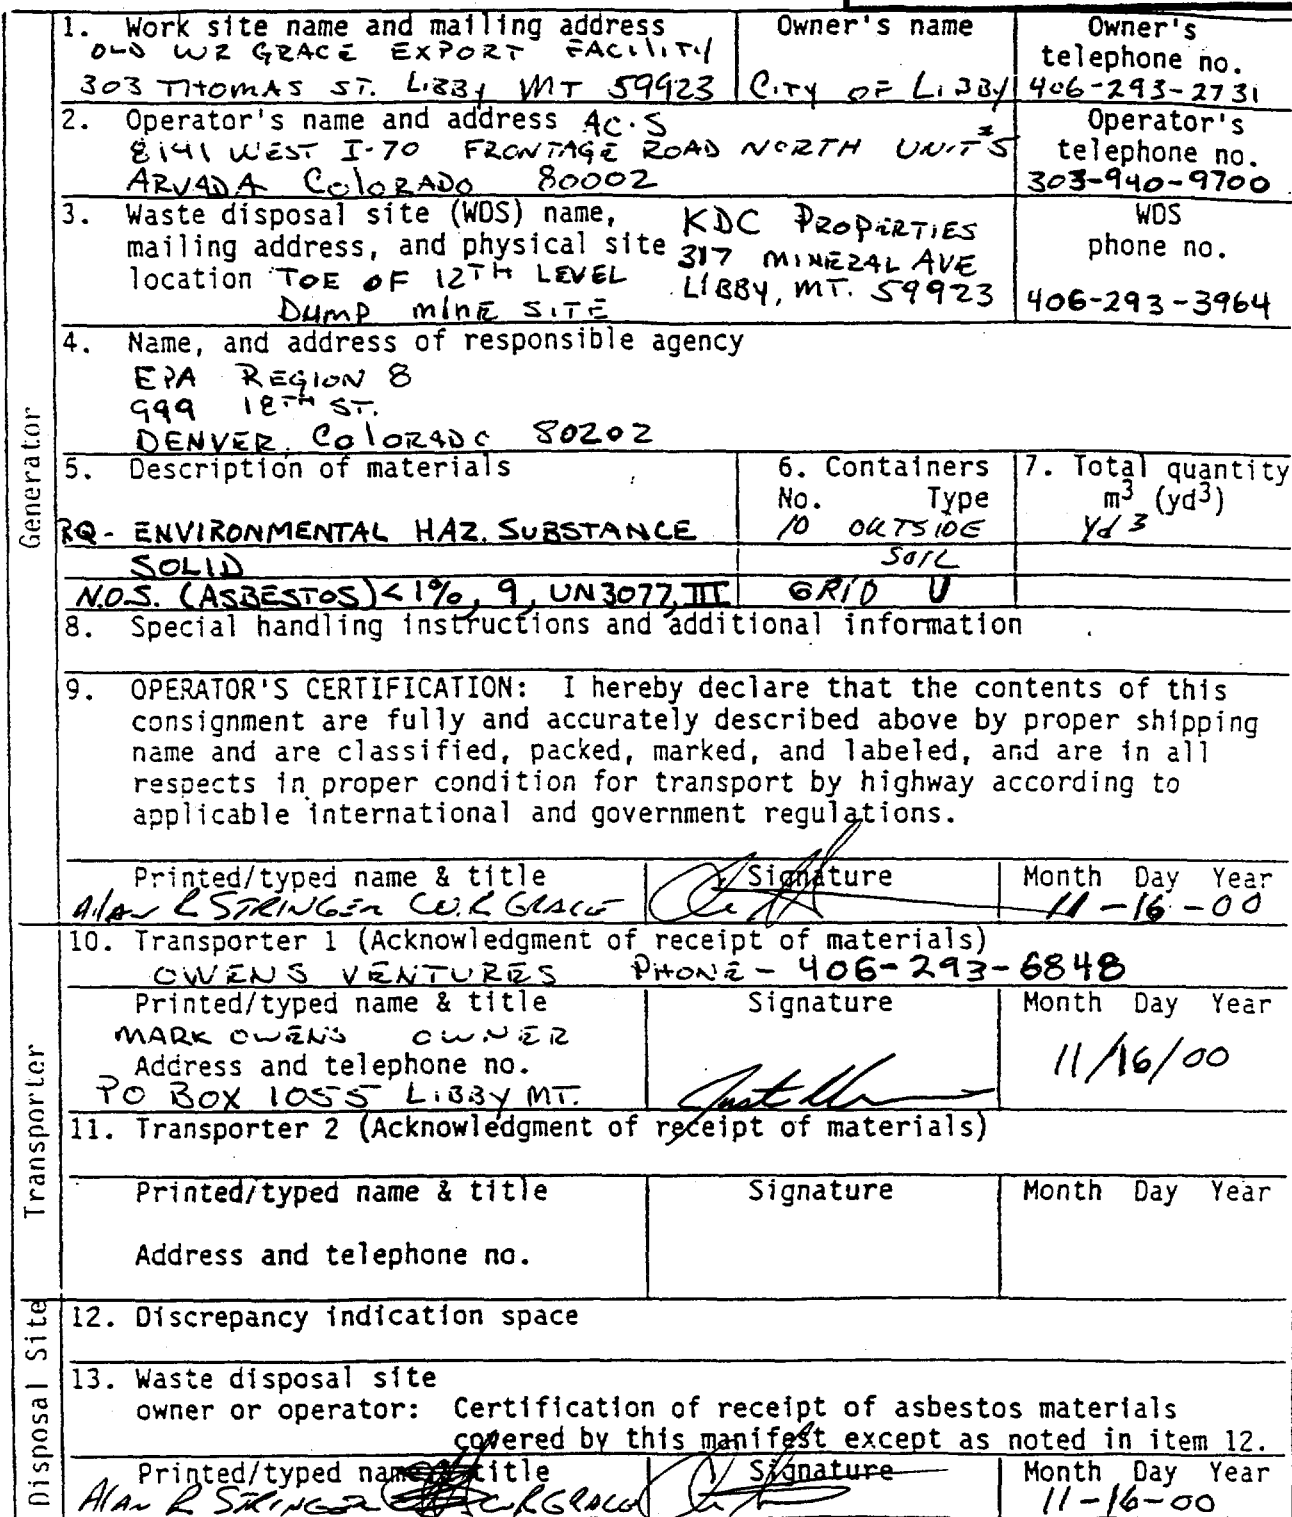 1. Work site name and mailing address
OLD WR GRACE EXPORT FACILITY
303 THOMAS ST. LIBBY MT 59923
Owner's name
CITY OF LIBBY
Owner's
telephone no.
406-293-2731
2. Operator's name and address AC.S
8141 WEST I-70 FRONTAGE ROAD NORTH UNIT #5
ARVADA COLORADO 80002
Operator's
telephone no.
303-940-9700
3. Waste disposal site (WDS) name,
mailing address, and physical site
location TOE OF 12TH LEVEL
DUMP MINE SITE
KDC PROPERTIES
317 MINERAL AVE
LIBBY, MT. 59923
WDS
phone no.
406-293-3964
4. Name, and address of responsible agency
EPA REGION 8
999 18TH ST.
DENVER, COLORADO 80202
Generator
5. Description of materials
6. Containers
No. Type
7. Total quantity
m³ (yd³)
RQ - ENVIRONMENTAL HAZ. SUBSTANCE
10 OUTSIDE
yd 3
SOLID
SOIL
N.O.S. (ASBESTOS) < 1%, 9, UN3077, III
GRID U
8. Special handling instructions and additional information
9. OPERATOR'S CERTIFICATION: I hereby declare that the contents of this
consignment are fully and accurately described above by proper shipping
name and are classified, packed, marked, and labeled, and are in all
respects in proper condition for transport by highway according to
applicable international and government regulations.
Printed/typed name & title
Alan R STRINGER W.R GRACE
Signature
Month Day Year
11-16-00
Transporter
10. Transporter 1 (Acknowledgment of receipt of materials)
OWENS VENTURES PHONE - 406-293-6848
Printed/typed name & title
MARK OWENS OWNER
Address and telephone no.
PO BOX 1055 LIBBY MT.
Signature
Month Day Year
11/16/00
11. Transporter 2 (Acknowledgment of receipt of materials)
Printed/typed name & title
Signature
Month Day Year
Address and telephone no.
Disposal Site
12. Discrepancy indication space
13. Waste disposal site
owner or operator: Certification of receipt of asbestos materials
covered by this manifest except as noted in item 12.
Printed/typed name & title
Alan R STRINGER W.R GRACE
Signature
Month Day Year
11-16-00